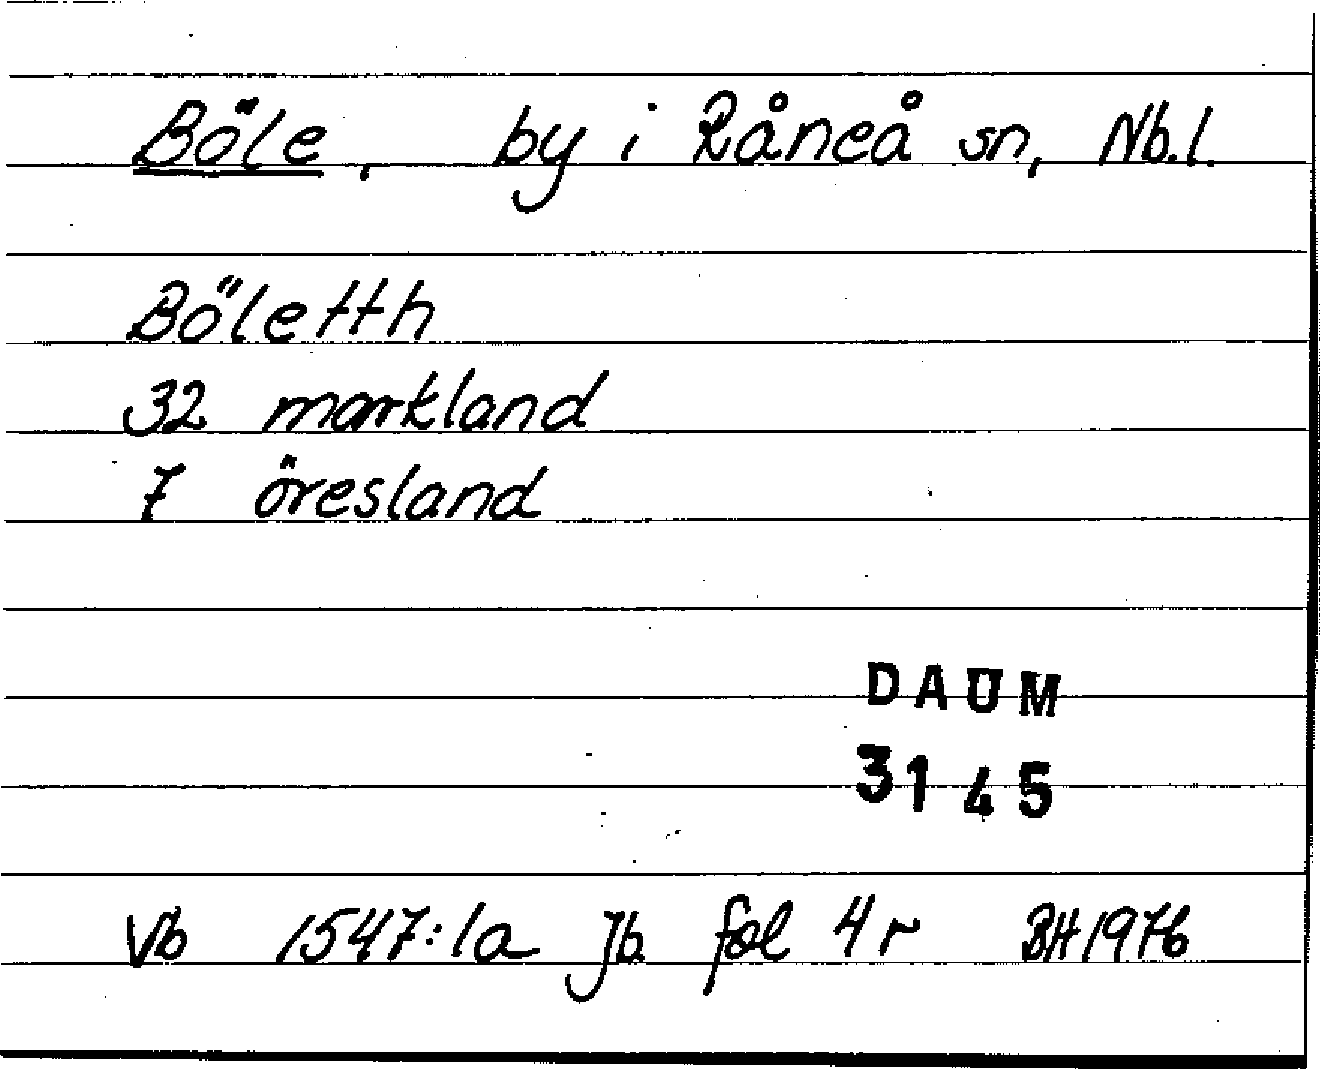 Böle, by i Råneå sn, Nb.l.
Böletth
32 markland
7 öresland
DAUM
3145
Vb 1547:1a Jb fol 4 r BH 1976